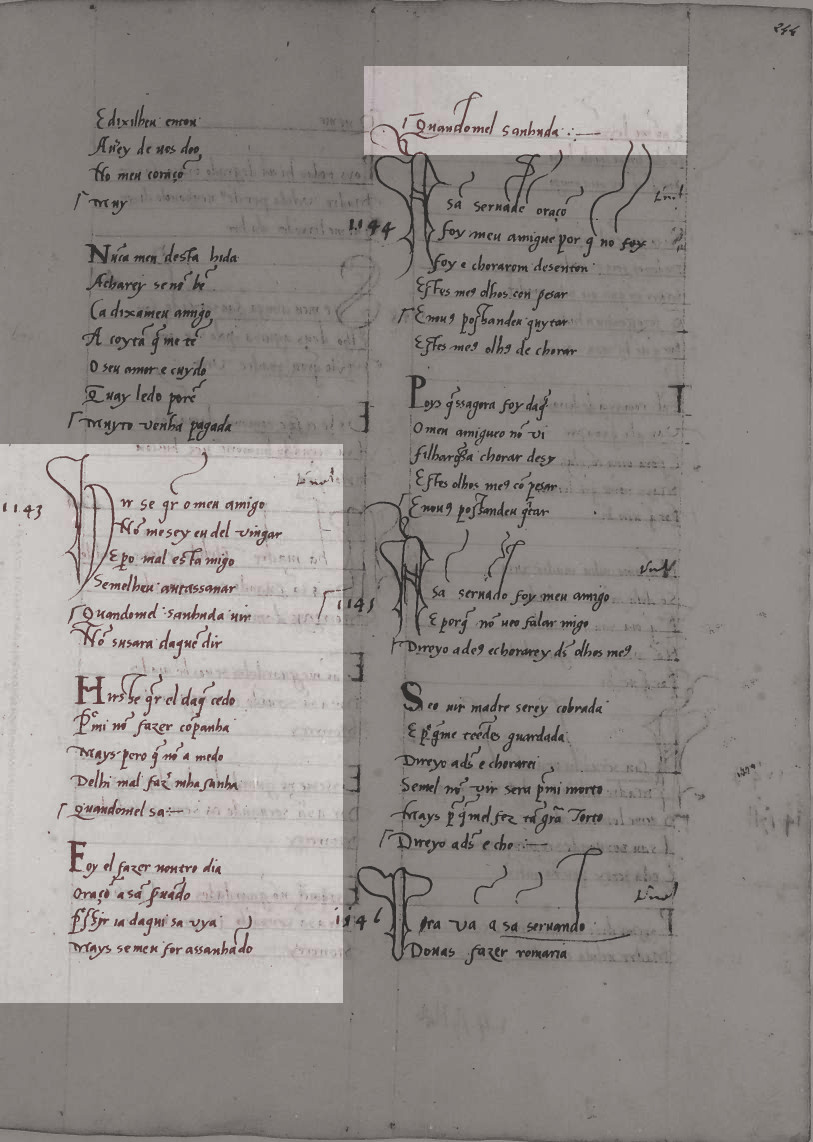 244
Edixilheu entou
Auey de uos doo
No meu coraçõ
Muy
Nũca meu desta hida
Acharey se nõ bẽ
Ca dixameu amigo
A coytã q̃ me tẽ
O seu amor e cuydo
Quay ledo porẽ
Muyto venha pagada
1143
Ir se q̃r o meu amigo
Nõ me sey eu del vingar
Epo mal esta migo
Semelheu antassanar
Quandomel sanhuda uir
Nõ susara daquẽ dir
Hirse q̃r el daq̃ cedo
P̃ mi nõ fazer cõpanha
Mays pero q̃ nõ a medo
Delhi mal faz̃ mha sanha
Quandomel sa:-
Foy el fazer noutro dia
Oraçõ a sã s̃uãdo
P̃ ssir ia daqui sa uya
Mays semeu for assanhãdo
Quandomel sanhuda :-
1144
A sã seruãde oraçõ
foy meu amigue por q̃ nõ foy
foy e chorarom desenton
Estes me9 olhos con pesar
Enou9 possandeu quytar
Estes me9 olh9 de chorar
Poys q̃ssagora foy daq̃
O meu amigueo nõ vi
filharõsa chorar desy
Estes olhos me9 cõ pesar
Enou9 possandeu q̃tar
1145
A sã seruãdo foy meu amigo
E porq̃ nõ ueo falar migo
Direyo a de9 echorarey ds̃ olhos me9
Se o uir madre serey cobrada
E p̃q̃me teedes guardada
Direyo ads̃ e chorarei
Semel nõ vir sera p̃mi morto
Mays p̃q̃mel fez tã grã Torto
Direyo ads̃ e cho :-
1146
Ora va a sa seruando
Donas fazer romaria